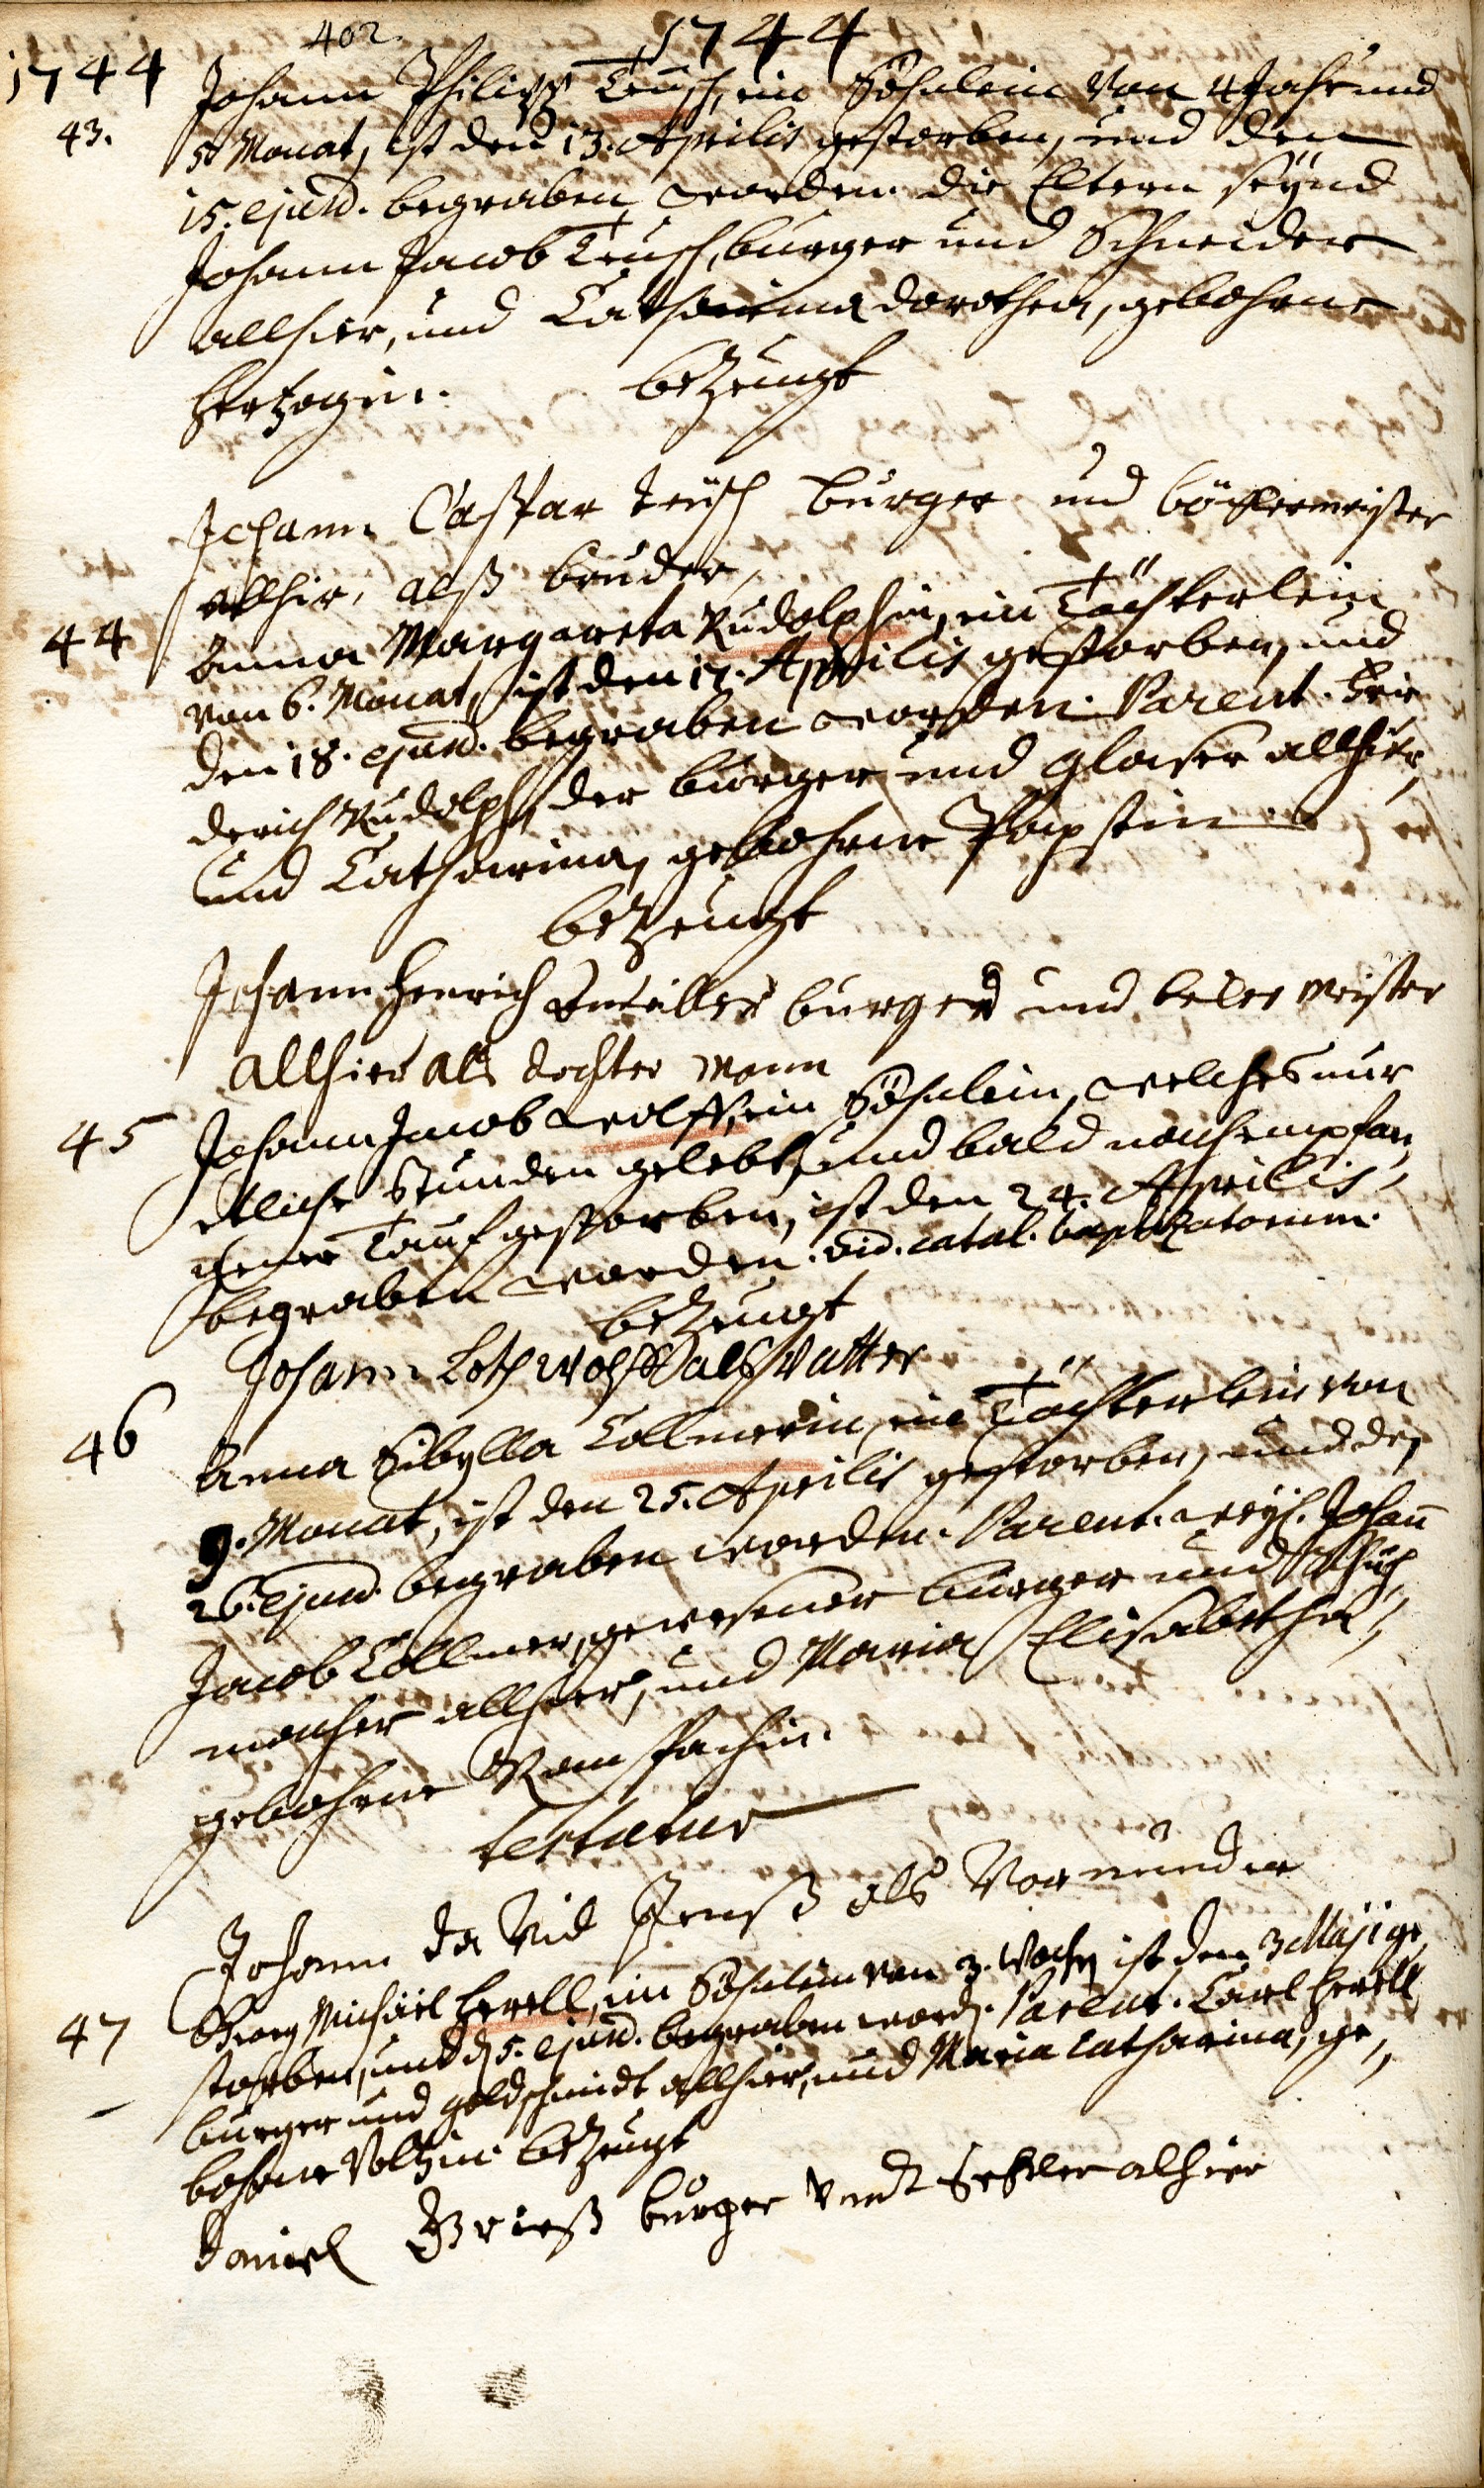 402. 1744
1744
43.
Johann Philipp Teusch, ein Söhnlein von 4 Jahr und
5 Monat, ist den 13. Aprilis gestorben, und den
15. ejusd. begraben worden. die Eltern seynd
Johann Jacob Teusch, burger und Schneider
allhier, und Catharina Dorothea, gebohrne
Hertzogin. bezeugt
Johann Caspar Teüsch burger und
allhier, alß bruder,
44
Anna Margareta Rudolphin, ein Töchterlein
von 6. Monat, ist den 17. Aprilis gestorben, und
den 18. ejusd. begraben worden. Parent. Frie
derich Rudolph, der burger und glaser allhier,
und Catharina, gebohrne Papstin
bezeugt
Johann Henrich burger und meister
allhier als dochter Mann
45
Johann Jacob Wolff, ein Söhnlein, welches nur
etliche Stunden gelebt, und bald nach empfan,
gener Tauf gestorben, ist den 24. Aprilis
begraben worden. vid. catal. baptizatorum.
bezeugt
Johann Wolff als Vatter
46
Anna Sibylla Collmerin, ein Töchterlein von
9. Monat, ist den 25. Aprilis gestorben, und den
26. ejusd. begraben worden. Parent. weyl. Johann
Jacob Collmer, gewesener burger und Schuh,
macher allhier, und Maria Elisabetha,
gebohrne Ramspachin.
testatur
Johann David als Vormünder
47
Georg Michael Herell, ein Söhnlein von 3. Wochen ist den 3 Maji ge,
storben, und den 5. ejusd. begraben worden. Parent. Carl Herell
burger und goldschmidt allhier, und Maria Catharina, ge,
bohrne Voltzin bezeugt
Daniel burger vndt alhier